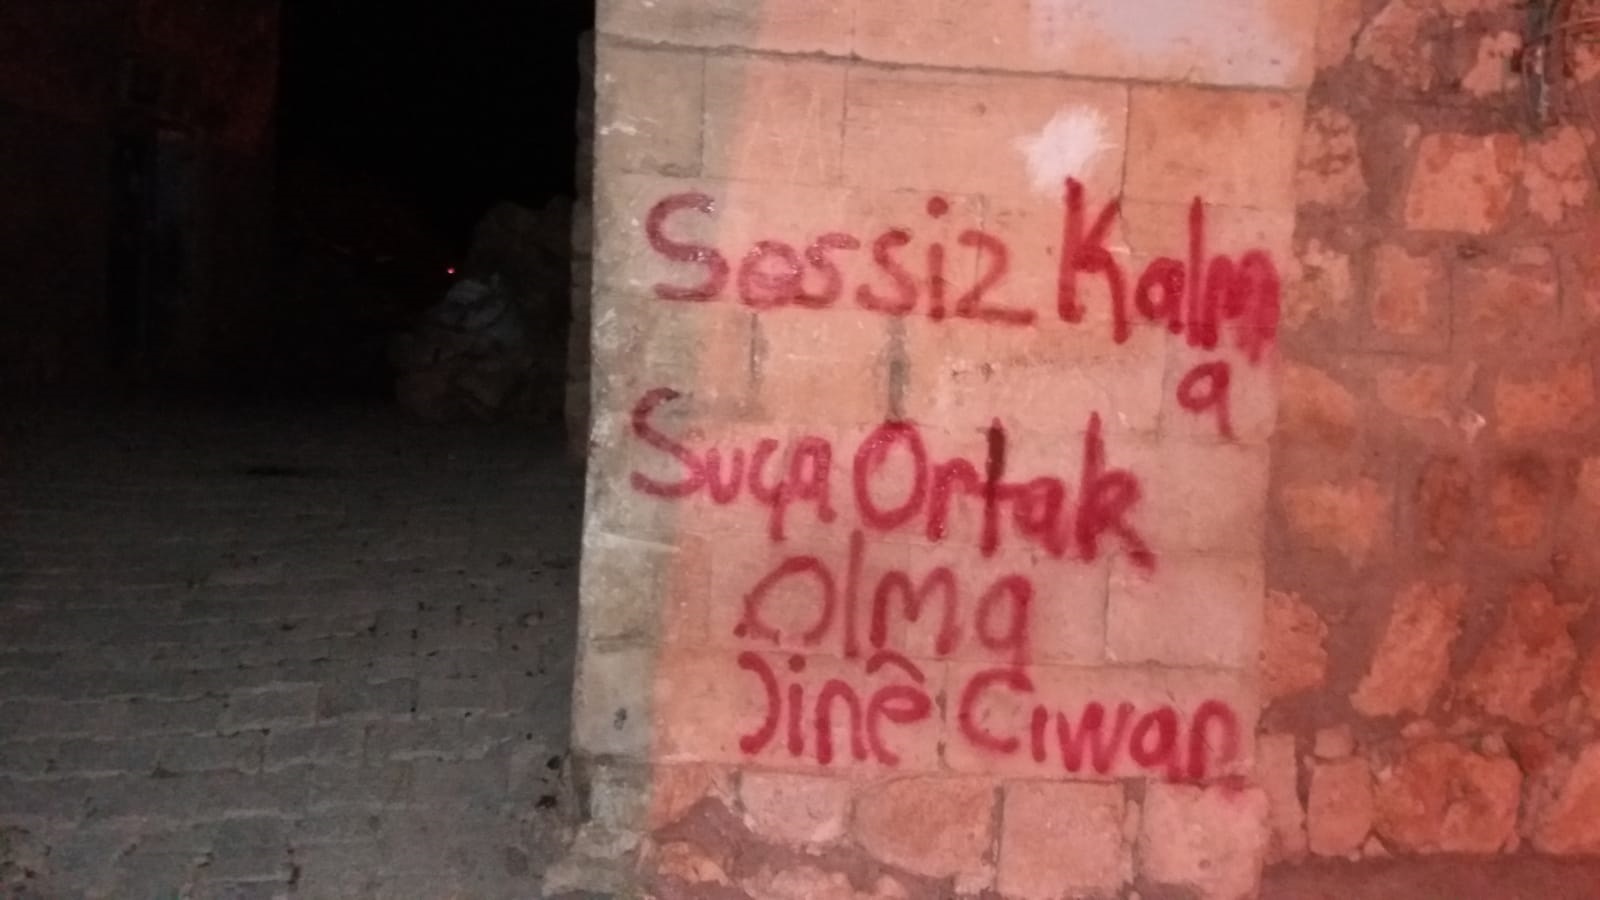 Sessiz Kalma
Suça Ortak
Olma
Jinê Cıwan